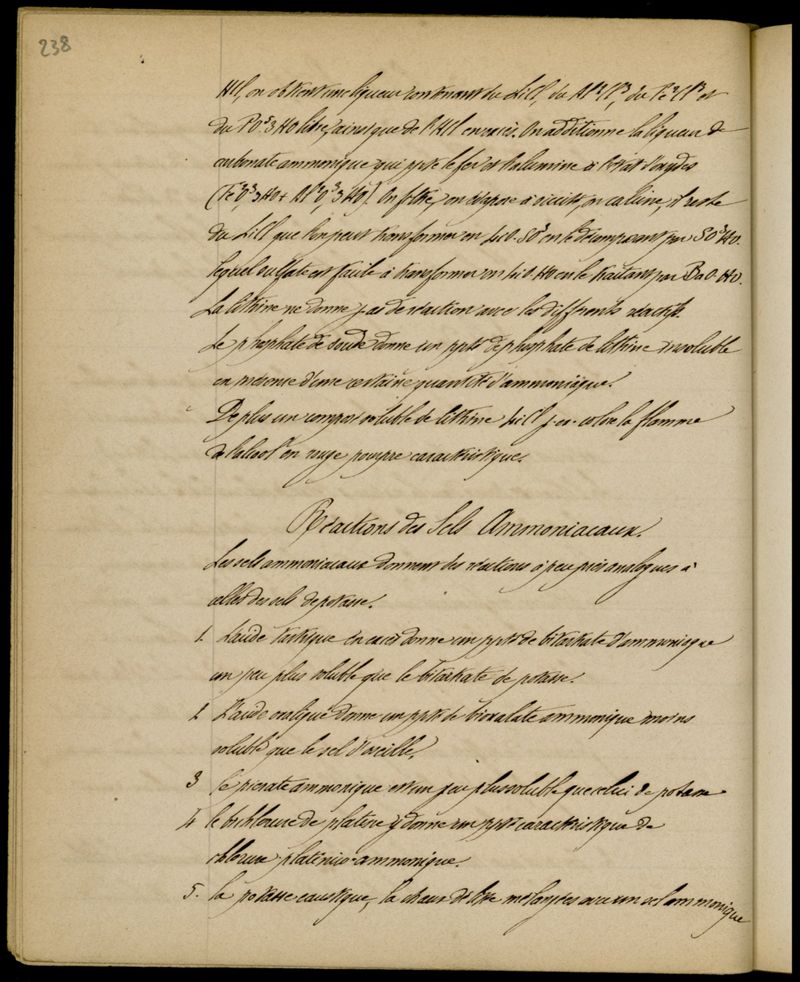 238
HCl, on obtient une liqueur contenant du LiCl, du Al²Cl³, du Fe²Cl³ et
du PO⁵3HO libre, ainsi que de l'HCl en excès. On additionne la liqueur de
carbonate ammonique qui ppte le fer et l'alumine à l'état d'oxydes
(Fe²O³,3HO + Al²O³,3HO). On filtre, on évapore à siccité, on calcine, il reste
du LiCl que l'on peut transformer en LiO.SO³ en le décomposant par SO³HO.
lequel sulfate est facile à transformer en LiO.HO en le traitant par BaO.HO.
La lithine ne donne pas de réaction avec les différents réactifs.
Le phosphate de soude donne un ppté de phosphate de lithine insoluble
en présence d'une certaine quantité d'ammoniaque.
De plus un composé soluble de lithine LiCl p. ex. colore la flamme
de l'alcool en rouge pourpre caractéristique.
Réactions des Sels Ammoniacaux.
Les sels ammoniacaux donnent des réactions à peu près analogues à
celles des sels de potasse.
1. L'acide tartrique en excès donne un ppté de bitartrate d'ammoniaque
un peu plus soluble que le bitartrate de potasse.
2. L'acide oxalique donne un ppté de bioxalate ammonique moins
soluble que le sel d'oseille.
3 Le picrate ammonique est un peu plus soluble que celui de potasse
4 le bichlorure de platine y donne un ppté caractéristique de
chlorure platinico-ammonique.
5. la potasse caustique, la chaux délitée mélangées avec un sel ammonique